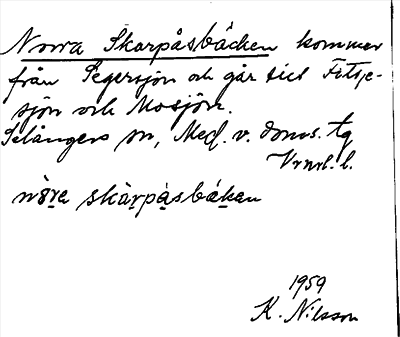 Norra Skarpåsbäcken kommer
från Segersjön och går till Fitsje-
sjön och Mosjön.
Selångers sn, Med. v. doms. tg
Vrml. l.
nöra skarpåsbäkan
1959
K. Nilsson